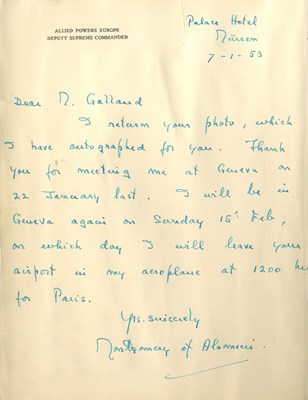 ALLIED POWERS EUROPE
DEPUTY SUPREME COMMANDER
Palace Hotel
Mürren
7-2-53
Dear M. Galland
I return your photo, which
I have autographed for you. Thank
you for meeting me at Geneva on
22 January last. I will be in
Geneva again on Sunday 15 Feb,
on which day I will leave your
airport in my aeroplane at 1200 hrs
for Paris.
Yrs. sincerely
Montgomery of Alamein.